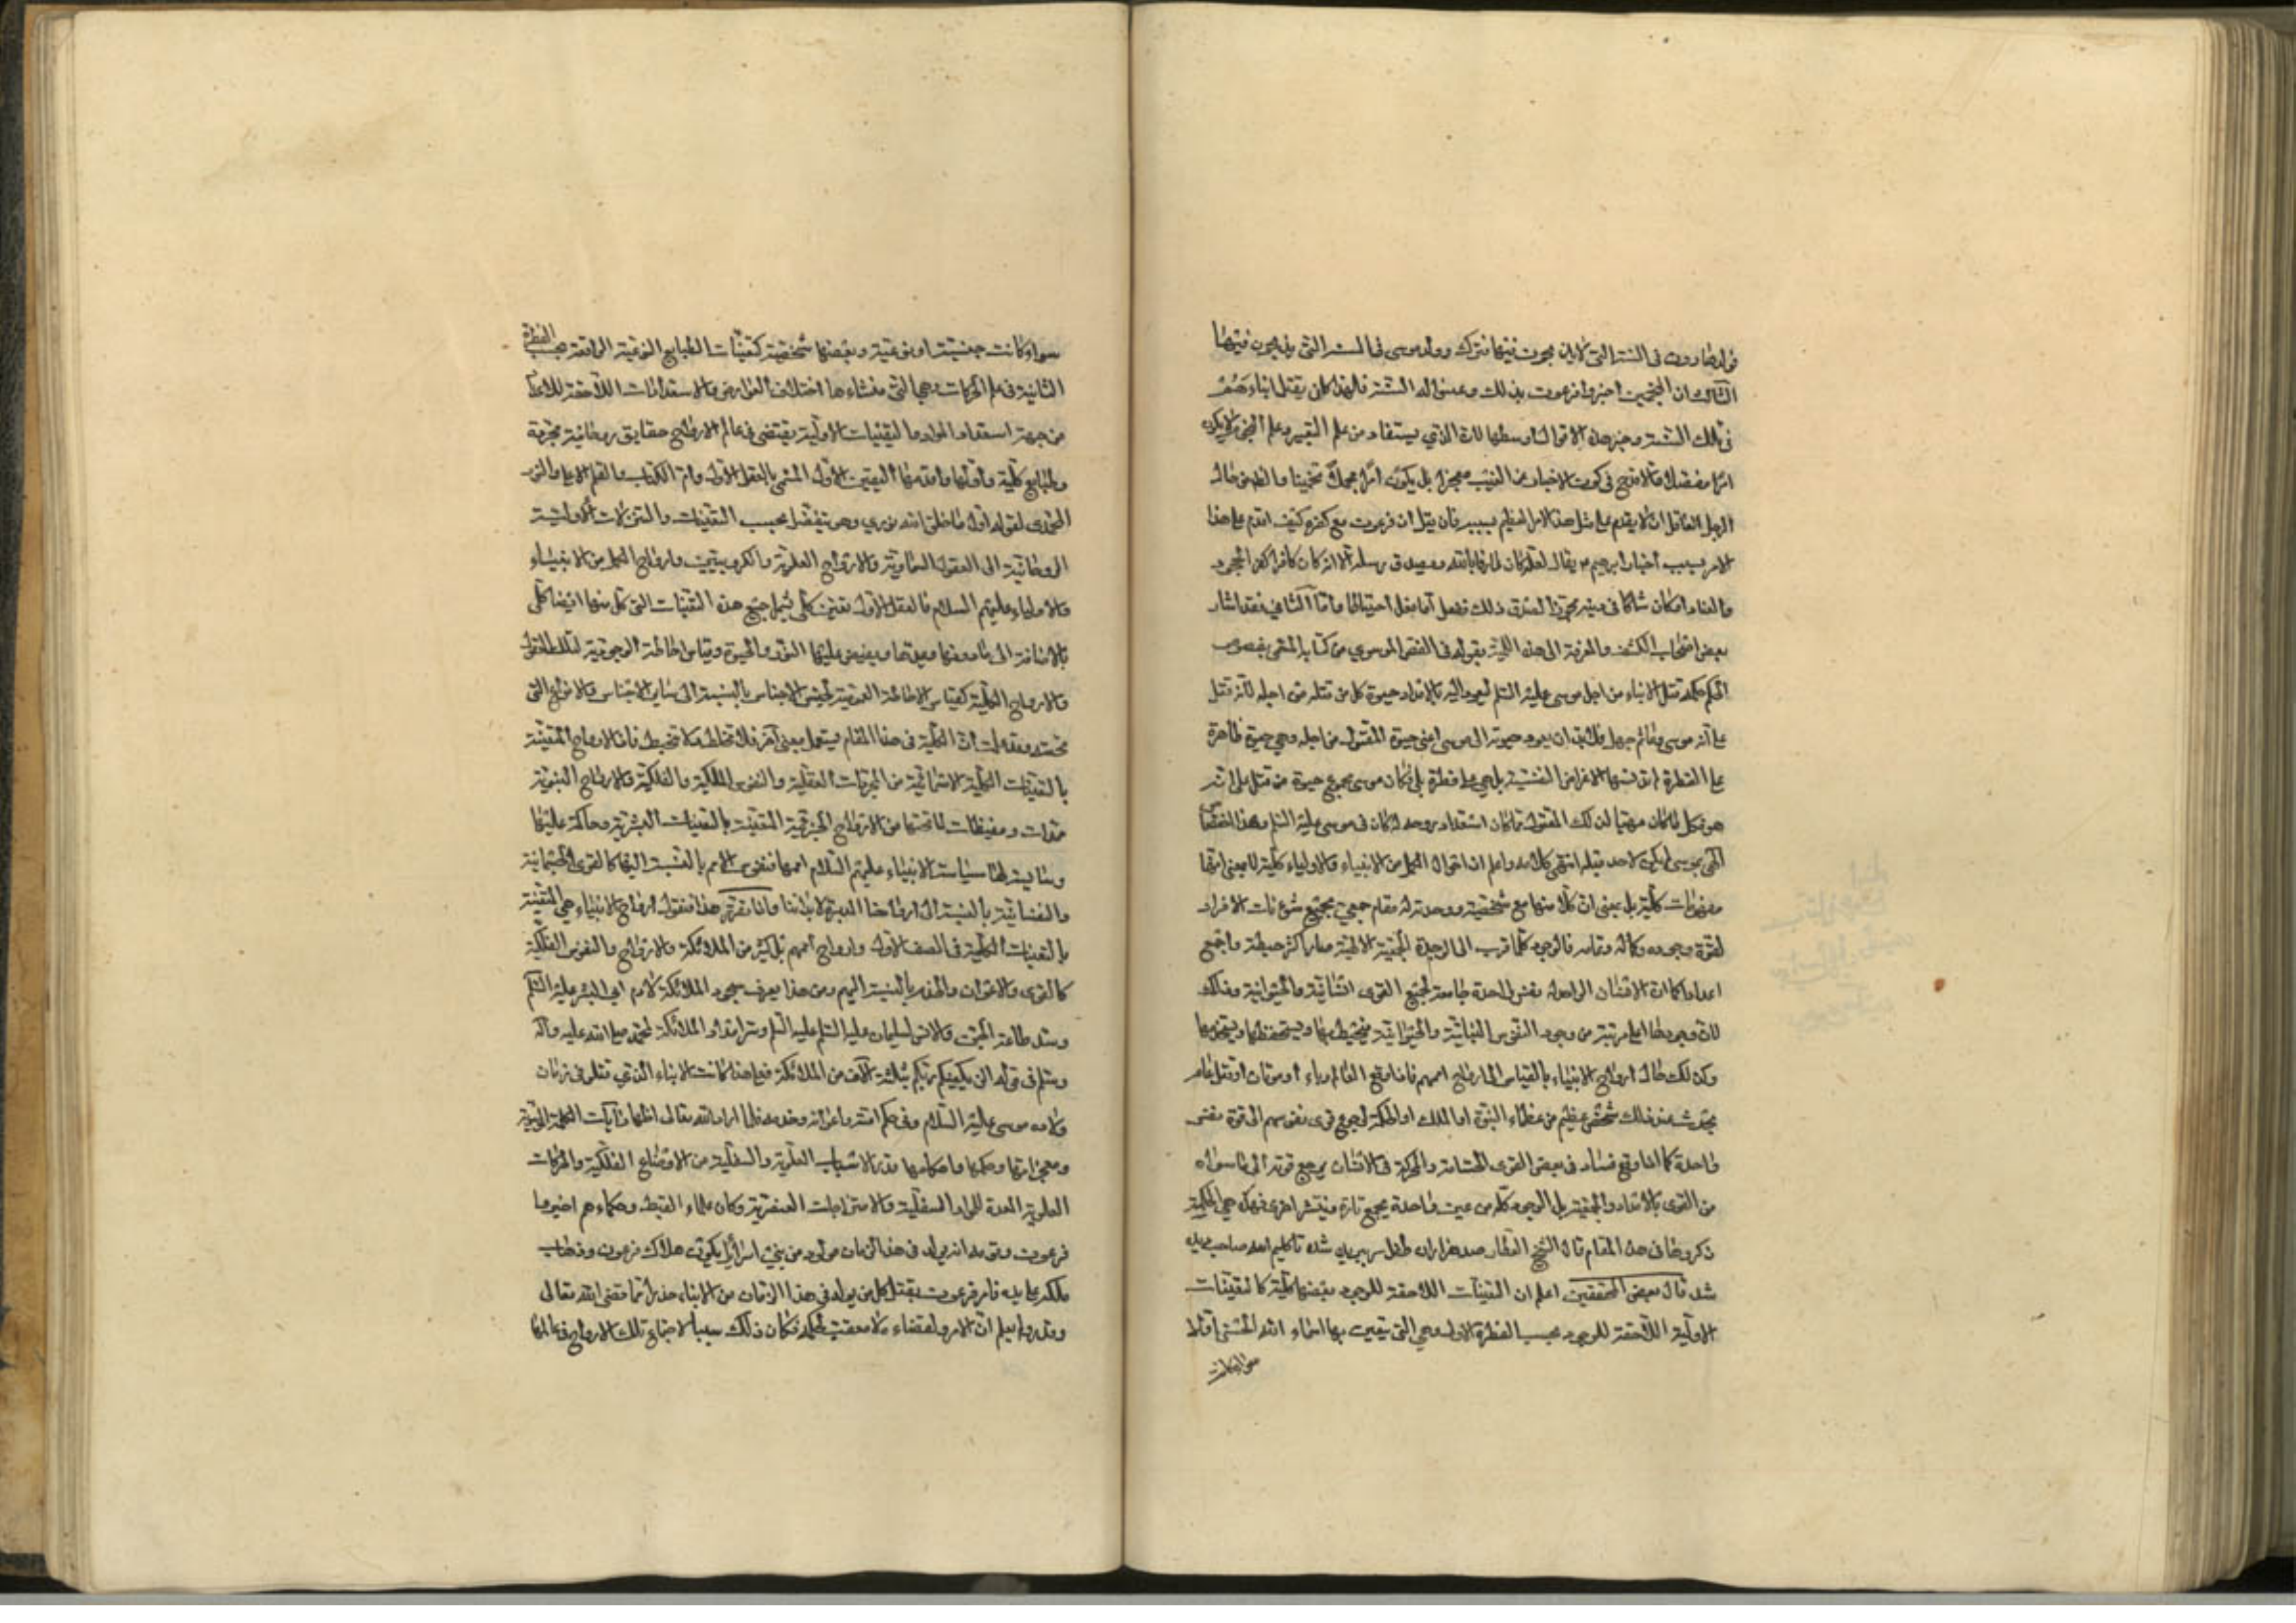 فولد هارون في السنة التي لا يذبحون فيها فترك وولد موسى في السنة التي يذبحون فيها
الثالث ان المنجمين اخبروا فرعون بذلك وعينوا له السنة فلهذا كان يقتل ابناءهم
في تلك السنة وخير هذه الاقوال اوسطها لان الذي يستفاد من علم التعبير وعلم النجوم لا يكون
امرا مفصلا والا قدح في كون الاخبار عن الغيب معجزا بل يكون امرا مجملا تخمينا والظاهر من حال
الرجل العاقل ان لا يقدم على مثل هذا الامر العظيم بسببه فان قيل ان فرعون مع كفره كيف اقدم على هذا
الامر بسبب اخبار ابرهيم يقال لعله كان عارفا بالله وبصدق رسله الا انه كان كافرا كفر الجحود
والعناد او كان شاكا في دينه مجوزا لصدق ذلك ففعل ما فعل احتياطا واما الثاني فقد اشار
بعض اصحاب الكشف والمعرفة الى هذه اللمية بقوله في الفص الموسوي من كتابه المسمى بفصوص
الحكم حكمة قتل الابناء من اجل موسى عليه السلم ليعود اليه بالامداد حيوة كل من قتله من اجله لانه قتل
على انه موسى وما ثم جهل فلا بد ان يعود حيوته الى موسى اعني حيوة المقتول من اجله وهي حيوة طاهرة
على الفطرة لم تدنسها الاغراض النفسية بل هي على فطرة بلى فكان موسى مجموع حيوة من قتل على انه
هو فكل ما كان مهيا لذلك المقتول مما كان استعداد روحه له كان في موسى عليه السلم وهذا اختصاص
الهي بموسى لم يكن لاحد قبله انتهى كلامه واعلم ان احوال الكمل من الانبياء والاولياء كلية لا بمعنى انها
مفهومات كلية بل بمعنى ان كلا منها مع شخصيته ووحدته له مقام جمعي يجتمع شؤنات الافراد
لقوة وجوده وكماله وتمامه فالوجود كلما قرب الى الوحدة الجمعية الالهية صار اكثر حيطة واجمع
اعدادا كما ان الانسان الواحد له نفس واحدة جامعة لجميع القوى النباتية والحيوانية وذلك
لان وجودها اعلى مرتبة من وجود النفوس النباتية والحيوانية فتحيط بها ويستحفظها ويستخدمها
وكذلك حال ارواح الانبياء بالقياس الى ارواح اممهم فاذا وقع القاء وباء او موتان او قتل عام
يحدث عند ذلك شخص عظيم من عظماء النبوة او الملك او الحكمة لرجوع قوى نفوسهم الى قوة نفس
واحدة كما اذا وقع فساد في بعض القوى الحساسة والمحركة في الانسان يرجع قوته الى ما سواه
من القوى بالامداد والجمعية بل الوجود كله من عين واحدة يجمع تارة وينتشر اخرى فهذه هي الحكمة
ذكروها في هذا المقام قال الشيخ العطار صد هزاران طفل سر ببريده شد تا كليم الله صاحب ديده
شد قال بعض المحققين اعلم ان التعينات اللاحقة للوجود بعضها كلية كالتعينات
الاولية اللاحقة للوجود بحسب الفطرة الاولى وهي التي تتعين بها اسماء الله الحسنى اولا
سواء كانت
سواء كانت جنسية او نوعية وبعضها شخصية كتعينات الطبايع النوعية الواقعة بحسب الفطرة
الثانية في علم الحركات وهي التي منشاءها اختلاف العوارض والاستعدادات اللاحقة للاعيان
من جهة استعداد المواد والتعينات الاولية يقتضي في عالم الارواح حقايق روحانية مجردة
وطبايع كلية واولها واقدمها التعين الاول المسمى بالعقل الاول وام الكتاب والقلم الاعلى والنور
المحمدي لقوله اول ما خلق الله نوري وهو يتفصل بحسب التعينات والتنزلات الاولية
الروحانية الى العقول السماوية والارواح العلوية والكروبيين وارواح الكمل من الانبياء
والاولياء عليهم السلام فالعقل الاول تعين كلي يشمل جميع هذه التعينات التي كل منها ايضا كلي
بالاضافة الى ما دونها ويمدها ويفيض عليها النور والحيوة وقياس احاطته الوجودية لتلك العقول
والارواح الكلية كقياس الاحاطة العمومية لجنس الاجناس بالنسبة الى ساير الاجناس والانواع التي
تحته وقد علمت ان الكلية في هذا المقام يستعمل بمعنى آخر فلا تخلط ولا تخبط فاذا الارواح المتعينة
بالتعينات الكلية الاسمائية من المجردات العقلية والنفوس الملكية والفلكية والارواح النبوية
ممدات ومفيضات لما تحتها من الارواح الجزئية المتعينة بالتعينات البشرية وحاكمة عليها
وسايسة لها سياسة الانبياء عليهم السلام اممها فنفوس الامم بالنسبة اليها كالقوى الجسمانية
والنفسانية بالنسبة الى ارواحنا المدبرة لابداننا واذا تقرر هذا فنقول ارواح الانبياء هي المتعينة
بالتعينات الكلية في الصف الاول وارواح اممهم بل كثير من الملائكة والارواح والنفوس الفلكية
كالقوى والاعوان والخدم بالنسبة اليهم ومن هذا يعرف سجود الملائكة لآدم ابي البشر عليه السلم
وسر طاعة الجن والانس لسليمان عليه السلم وسر امداد الملائكة لمحمد صلى الله عليه وآله
وسلم في قوله الن يكفيكم ان يمدكم ربكم بثلثة الآف من الملائكة فعلى هذا كانت الابناء الذي قتلوا في زمان
ولادة موسى عليه السلام وفي حكم امته واعوانه وخدمه فلما اراد الله تعالى اظهار آيات الكلمة الموسوية
ومعجزاتها وحكمها واحكامها قدر الاسباب العلوية والسفلية من الاوضاع الفلكية والحركات
العلوية المعدة للمواد السفلية والامتزاجات العنصرية وكان علماء القبط وحكماءهم اخبروا
فرعون وقومه انه يولد في هذا الزمان مولود من بني اسرائيل يكون هلاك فرعون وذهاب
ملكه على يديه فامر فرعون بقتل كل من يولد في هذا الزمان من الابناء حذرا مما قضى الله تعالى
وقدره ولم يعلم ان لا مرد لقضاءه ولا معقب لحكمه فكان ذلك سببا لاجتماع تلك الارواح في عالمها